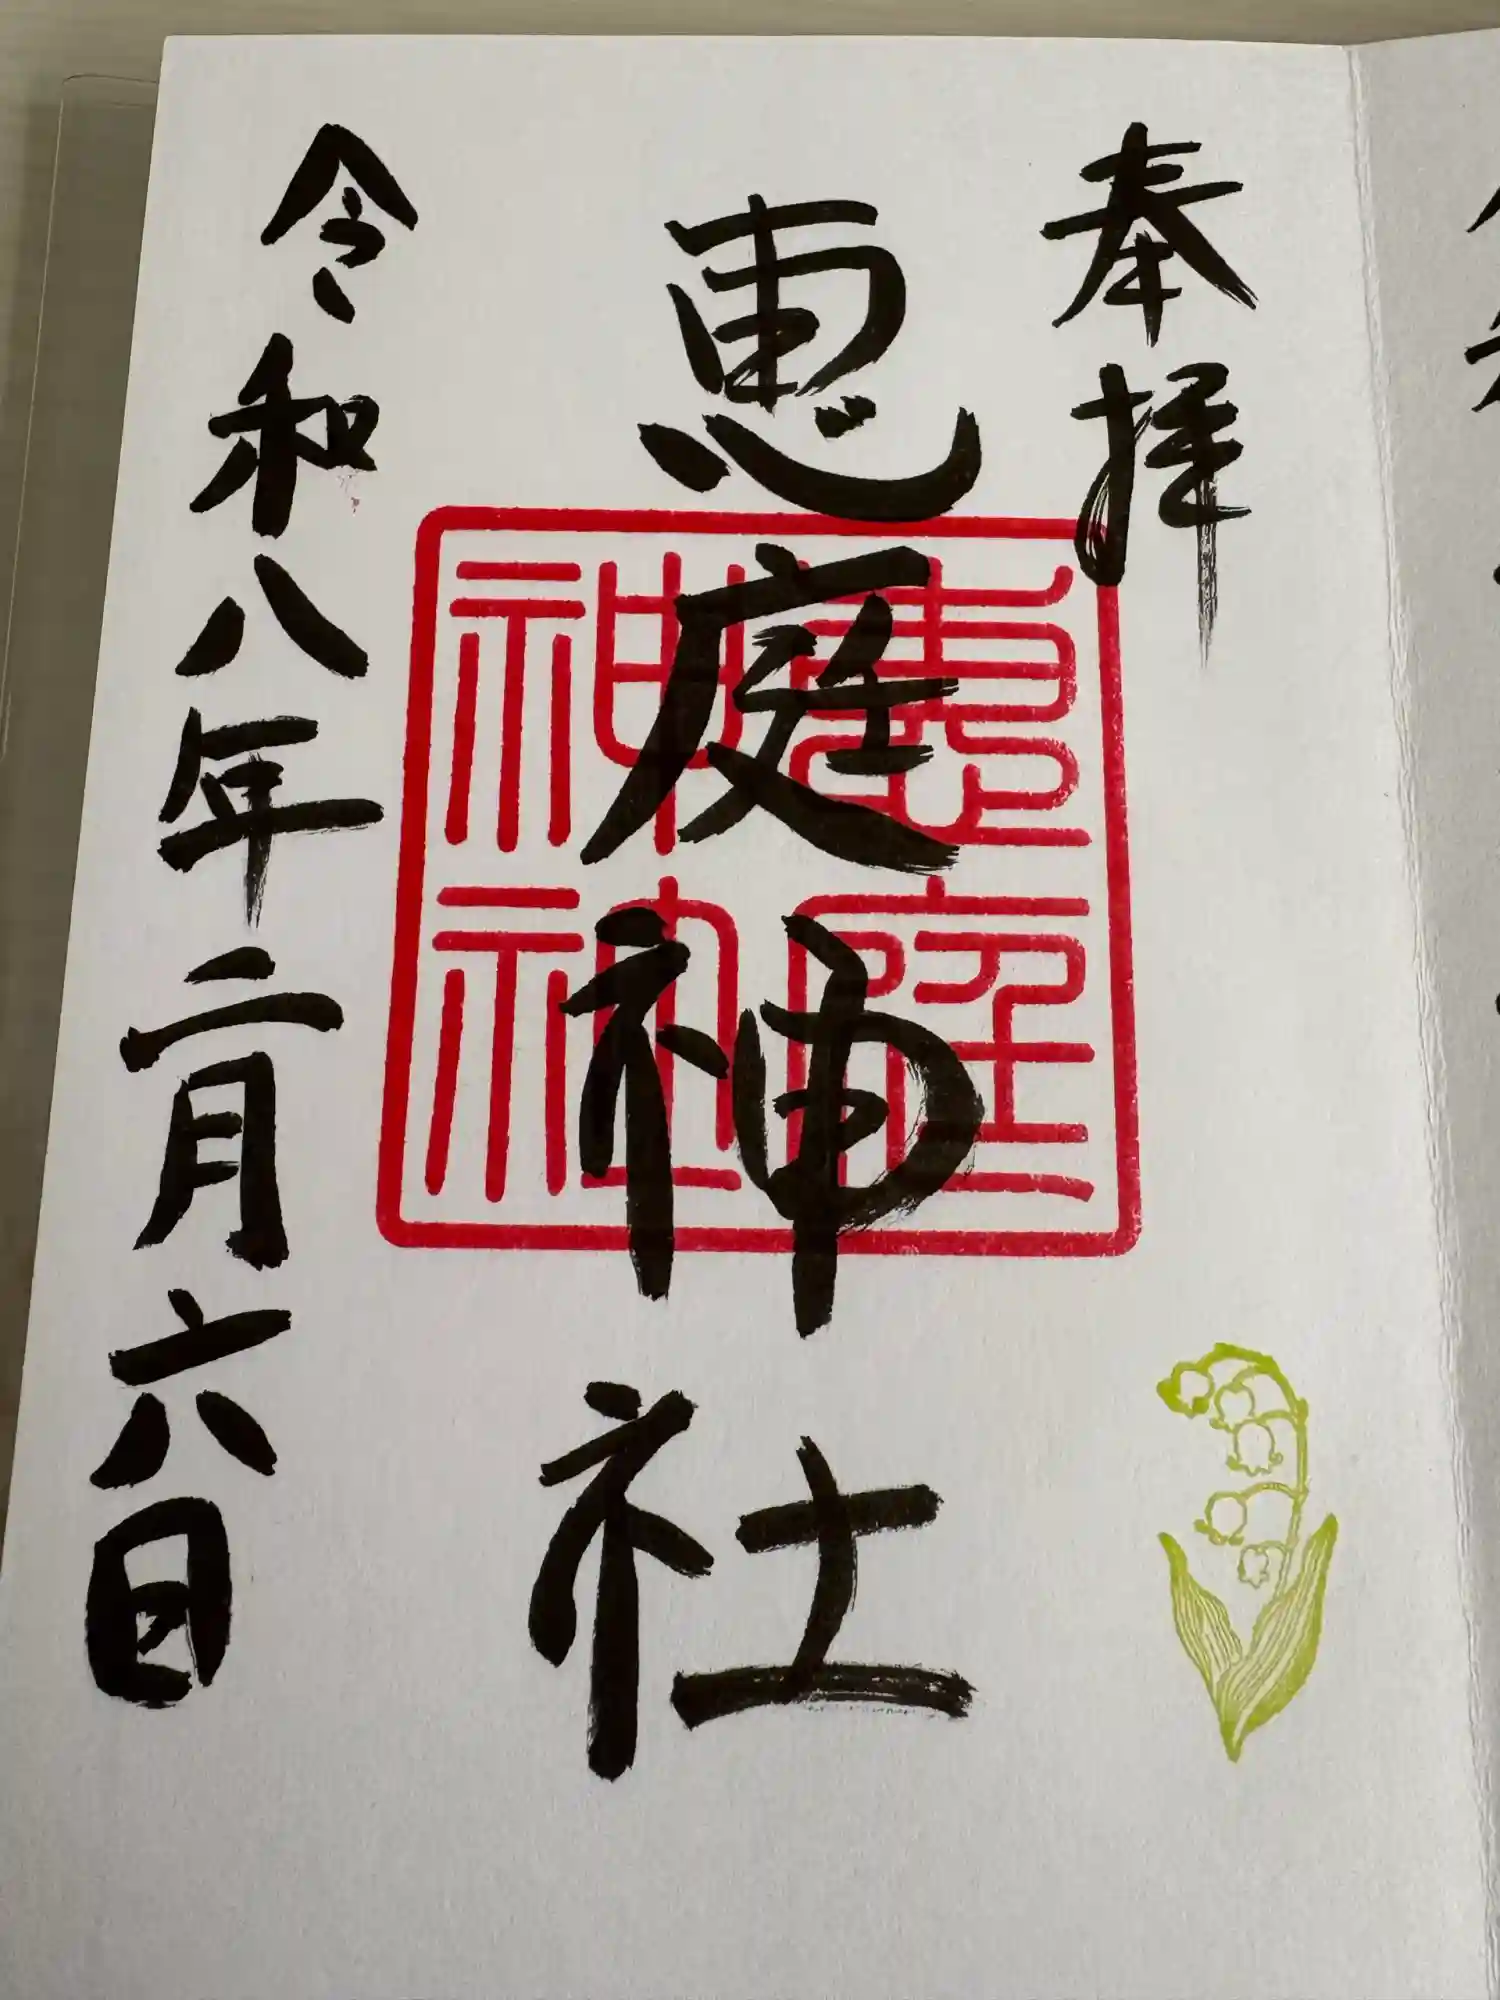 奉拝
恵庭神社
恵庭
神社
令和八年二月六日